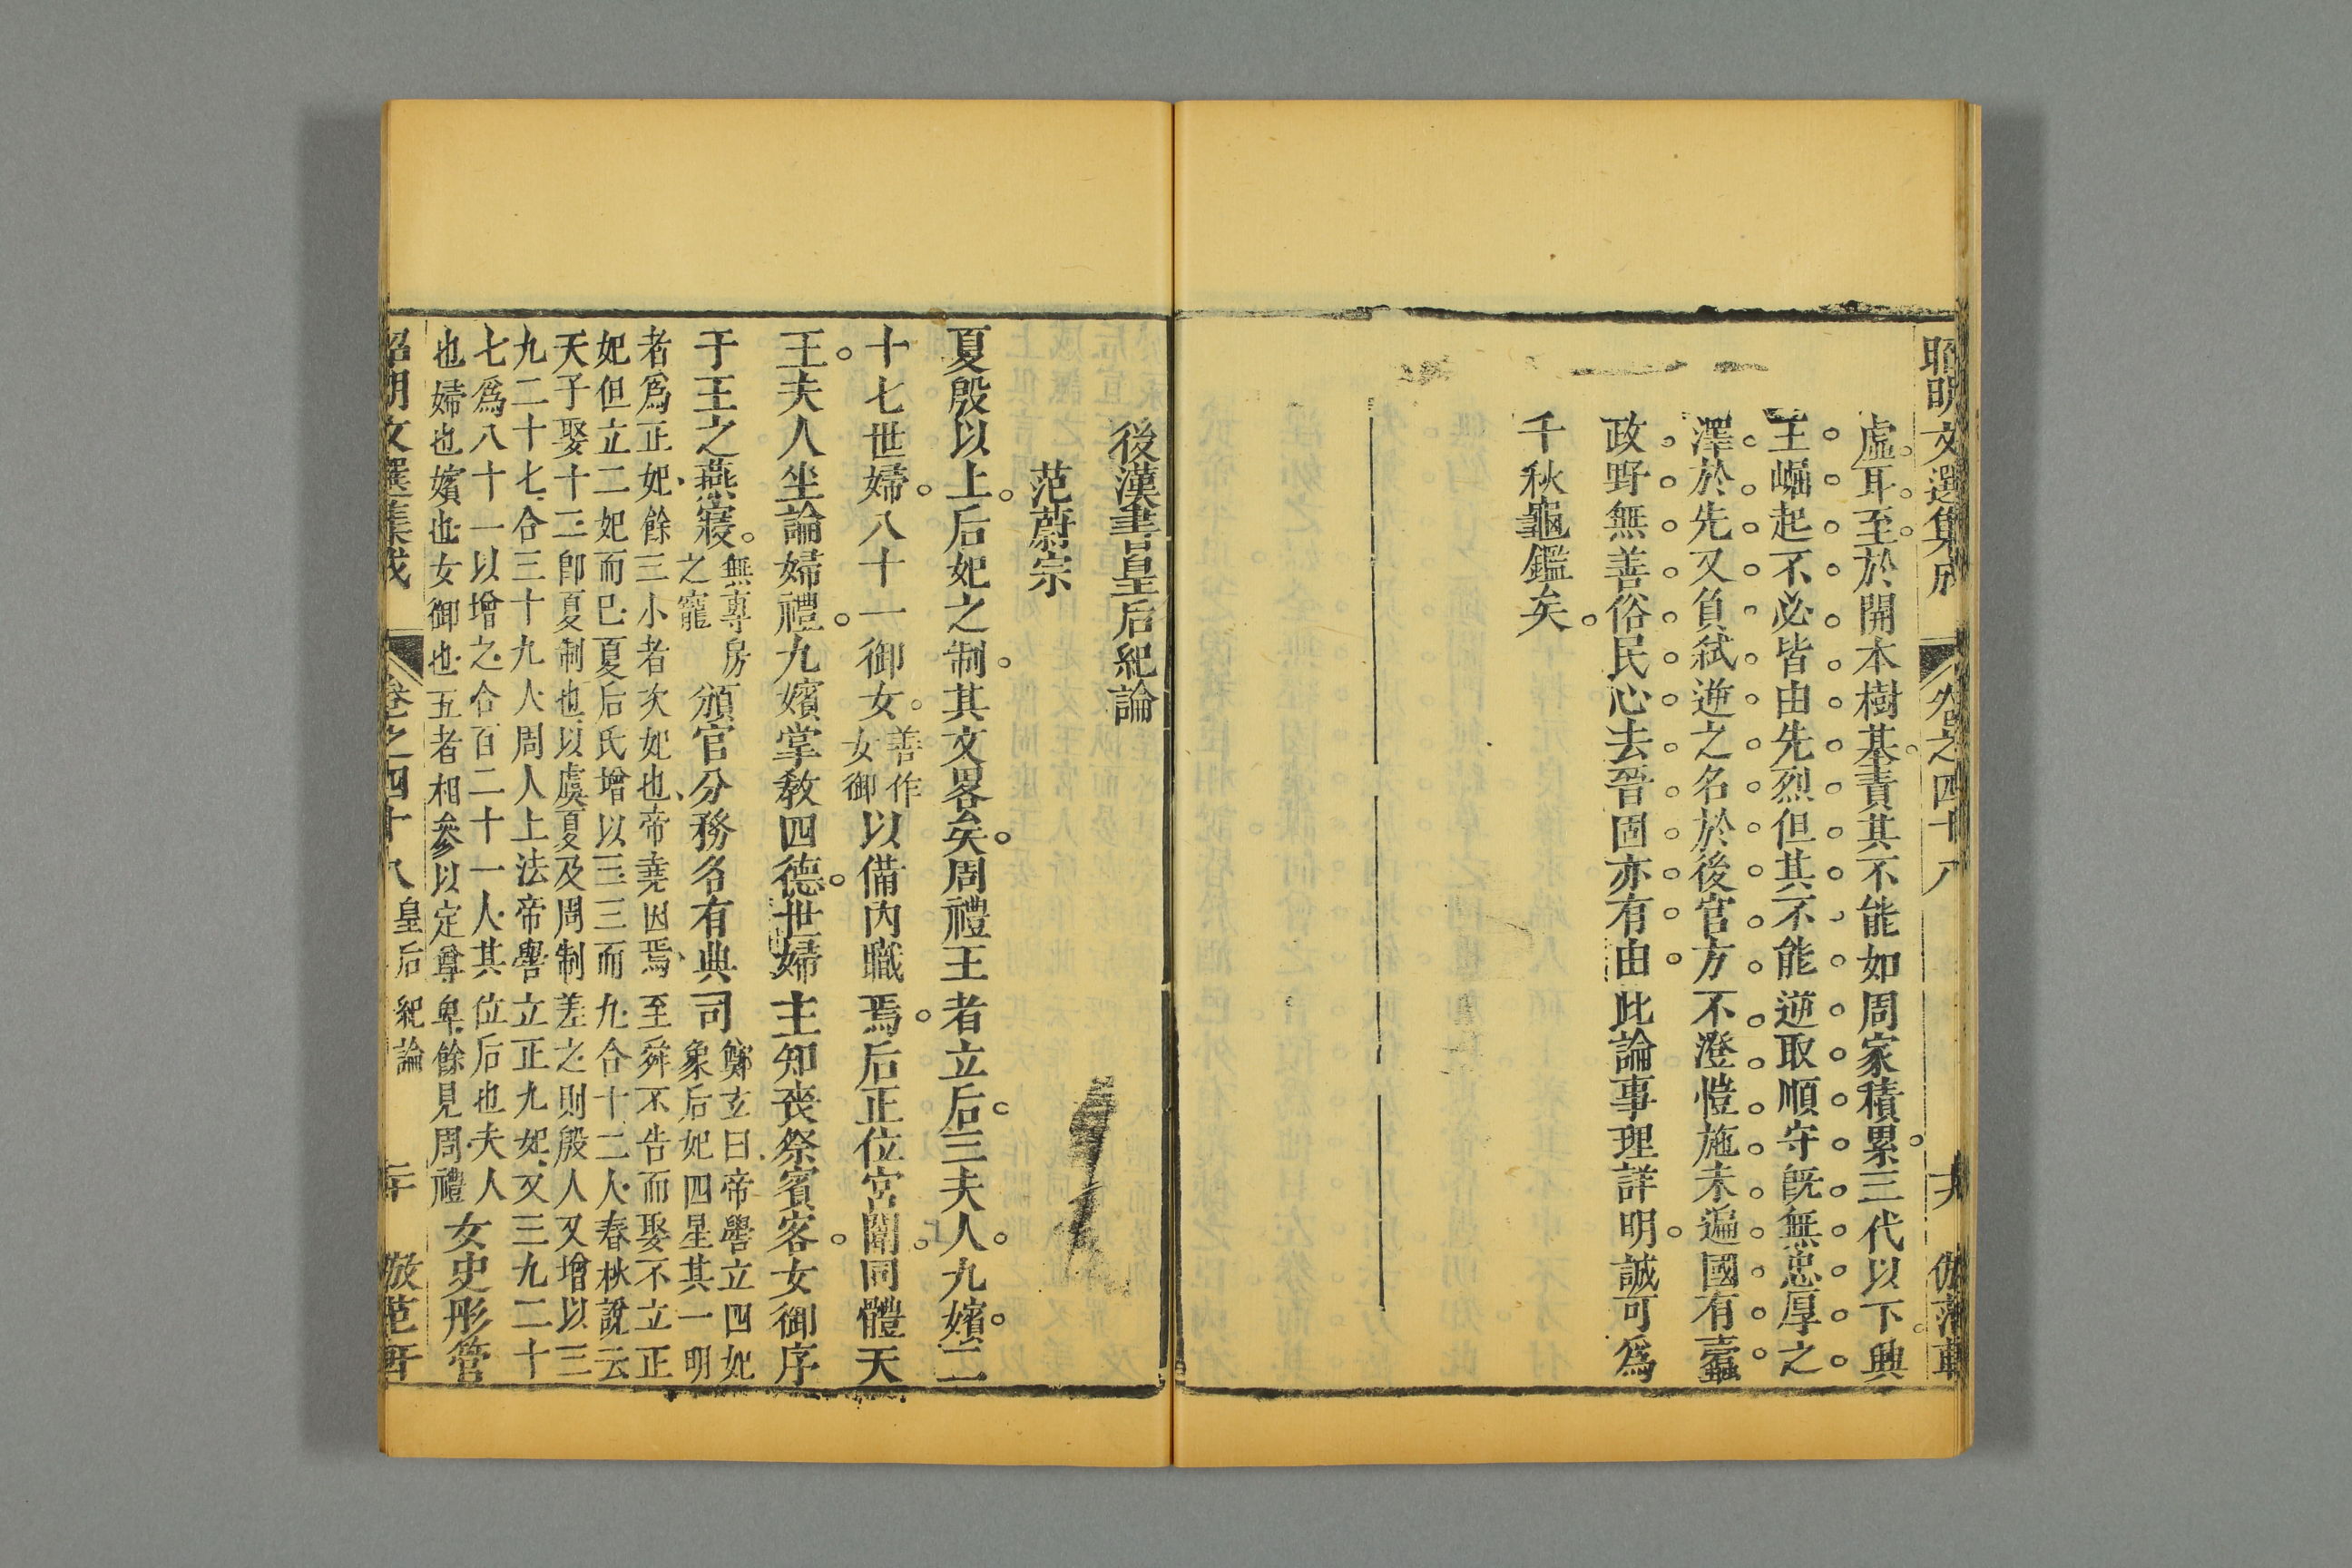 昭明文選集成 卷之四十八
虛耳至於開本樹基責其不能如周家積累三代以下興
王崛起不必皆由先烈但其不能逆取順守旣無忠厚之
澤於先又負弑逆之名於後官方不澄愷施未遍國有蠹
政野無善俗民心去晉固亦有由此論事理詳明誠可爲
千秋龜鑑矣
後漢書皇后紀論
范蔚宗
夏殷以上后妃之制其文畧矣周禮王者立后三夫人九嬪二
十七世婦八十一御女
善作
女御
以備內職焉后正位宮闈同體天
王夫人坐論婦禮九嬪掌敎四德世婦主知喪祭賓客女御序
于王之燕寢
無專房
之寵
頒官分務各有典司
鄭玄曰帝嚳立四妃
象后妃四星其一明
者爲正妃餘三小者次妃也帝堯因焉至舜不告而娶不立正
妃但立二妃而已夏后氏增以三三而九合十二人春秋說云
天子娶十二卽夏制也以虞夏及周制差之則殷人又增以三
九二十七合三十九人周人上法帝嚳立正九妃又三九二十
七爲八十一以增之合百二十一人其位后也夫人
也婦也嬪也女御也五者相參以定尊卑餘見周禮
女史彤管
昭明文選集成 卷之四十八 皇后紀論 二十 倣范軒